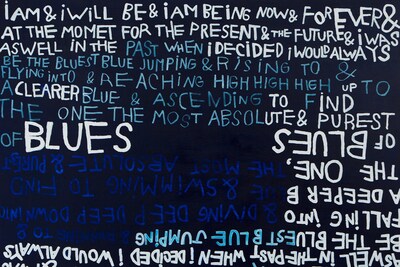 iAM & iWiLL BE & iAM BEiNG NOW & FOREVER &
AT THE MOMET FOR THE PRESENT & THE FUTURE & i WAS
ASWELL iN THE PAST WHEN iDECiDED iWOULD ALWAYS
BE THE BLUEST BLUE JUMPiNG & RiSiNG TO &
FLYiNG iNTO & REACHiNG HIGH HIGH HIGH UP TO
A CLEARER BLUE & ASCENDiNG TO FiND
THE ONE THE MOST ABSOLUTE & PUREST
OF BLUES
ASWELL iN THE PAST WHEN iDECiDED iWOULD ALWAYS
BE THE BLUEST BLUE JUMPiNG & TO &
FALLiNG iNTO & DiViNG DEEP DOWN iNTO
A DEEPER & SWiMMiNG TO FiND
THE ONE, THE MOST ABSOLUTE & PUREST
OF BLUES